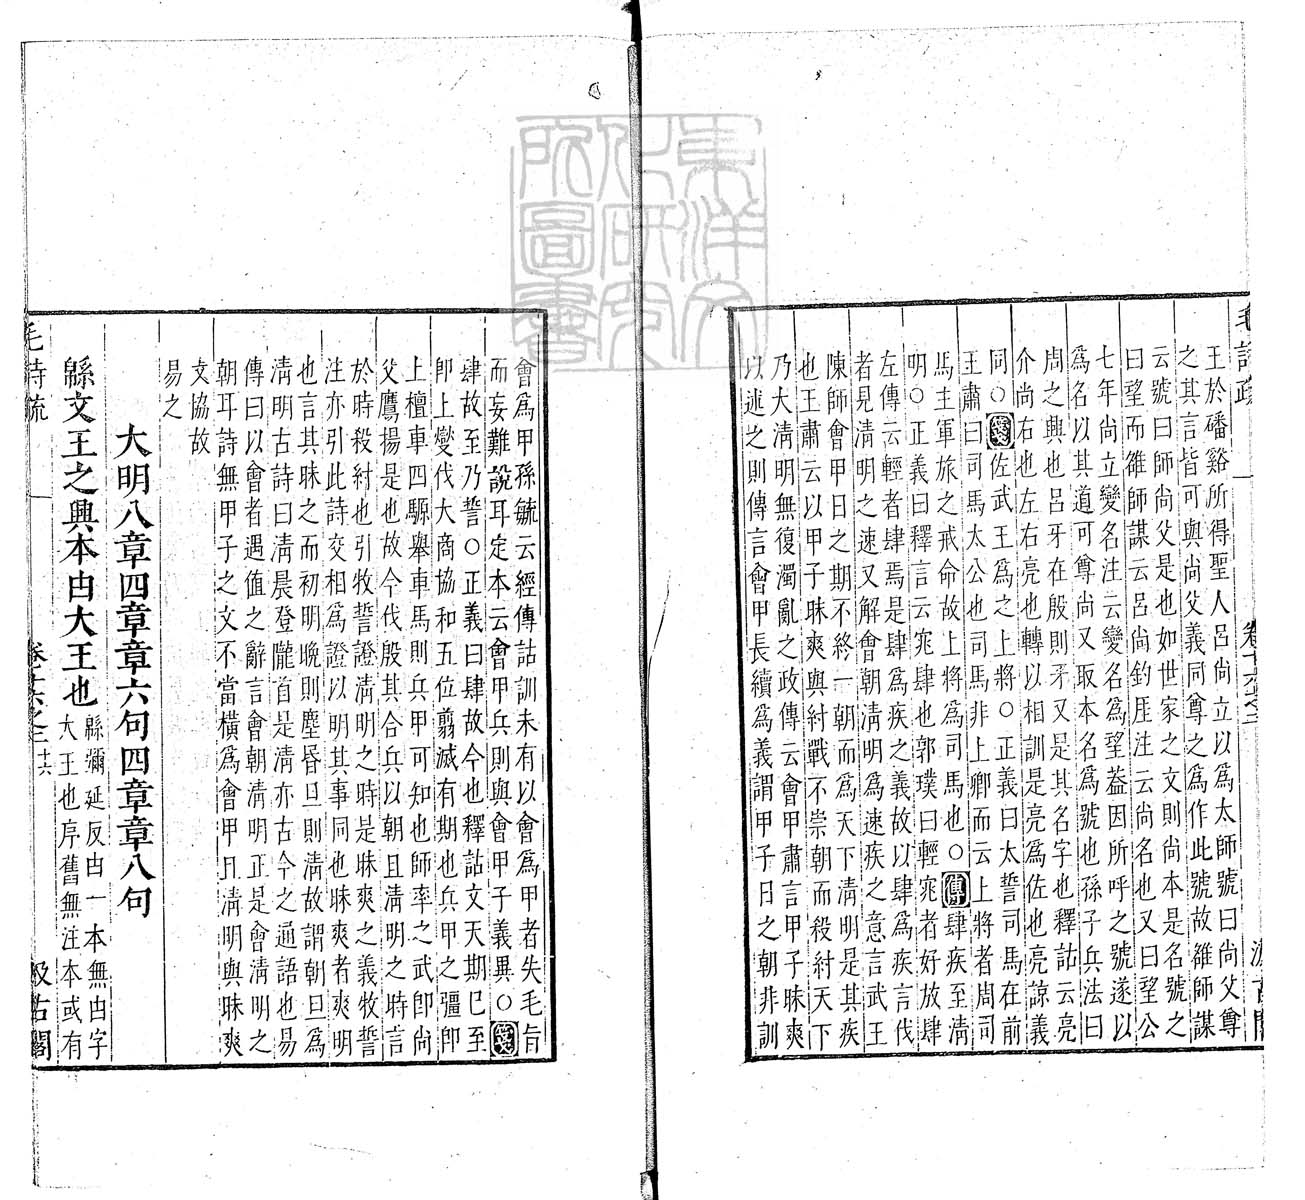 毛詩疏
卷十六之三
汲古閣
王於磻谿所得聖人呂尚立以爲太師號曰尚父尊
之其言皆可與尚父義同尊之爲作此號故雒師謀
云號曰師尚父是也如世家之文則尚本是名號之
曰望而雒師謀云呂尚釣厓注云尚名也又曰望公
七年尚立變名注云變名爲望葢因所呼之號遂以
爲名以其道可尊尚又取本名爲號也孫子兵法曰
周之興也呂牙在殷則牙又是其名字也釋詁云亮
介尚右也左右亮也轉以相訓是亮爲佐也亮諒義
同○箋佐武王爲之上將○正義曰太誓司馬在前
王肅曰司馬太公也司馬非上卿而云上將者周司
馬主軍旅之戒命故上將爲司馬也○傳肆疾至淸
明○正義曰釋言云窕肆也郭璞曰輕窕者好放肆
左傳云輕者肆焉是肆爲疾之義故以肆爲疾言伐
者見淸明之速又解會朝淸明爲速疾之意言武王
陳師會甲日之期不終一朝而爲天下淸明是其疾
也王肅云以甲子昧爽與紂戰不崇朝而殺紂天下
乃大淸明無復濁亂之政傳云會甲肅言甲子昧爽
以述之則傳言會甲長續爲義謂甲子日之朝非訓
會爲甲孫毓云經傳詁訓未有以會爲甲者失毛旨
而妄難說耳定本云會甲兵則與會甲子義異○箋
肆故至乃誓○正義曰肆故今也釋詁文天期巳至
卽上燮伐大商協和五位翦滅有期也兵甲之彊卽
上檀車四騵舉車馬則兵甲可知也師率之武卽尚
父鷹揚是也故今伐殷其合兵以朝且淸明之時言
於時殺紂也引牧誓證淸明之時是昧爽之義牧誓
注亦引此詩交相爲證以明其事同也昧爽者爽明
也言其昧之而初明晩則塵昏旦則淸故謂朝旦爲
淸明古詩曰淸晨登隴首是淸亦古今之通語也易
傳曰以會者遇值之辭言會朝淸明正是會淸明之
朝耳詩無甲子之文不當橫爲會甲且淸明與昧爽
文協故
易之
大明八章四章章六句四章章八句
緜文王之興本由大王也緜彌延反由一本無由字
大王也序舊無注本或有
毛詩疏
卷十六之三
十六
汲古閣
東洋文化研究所圖書